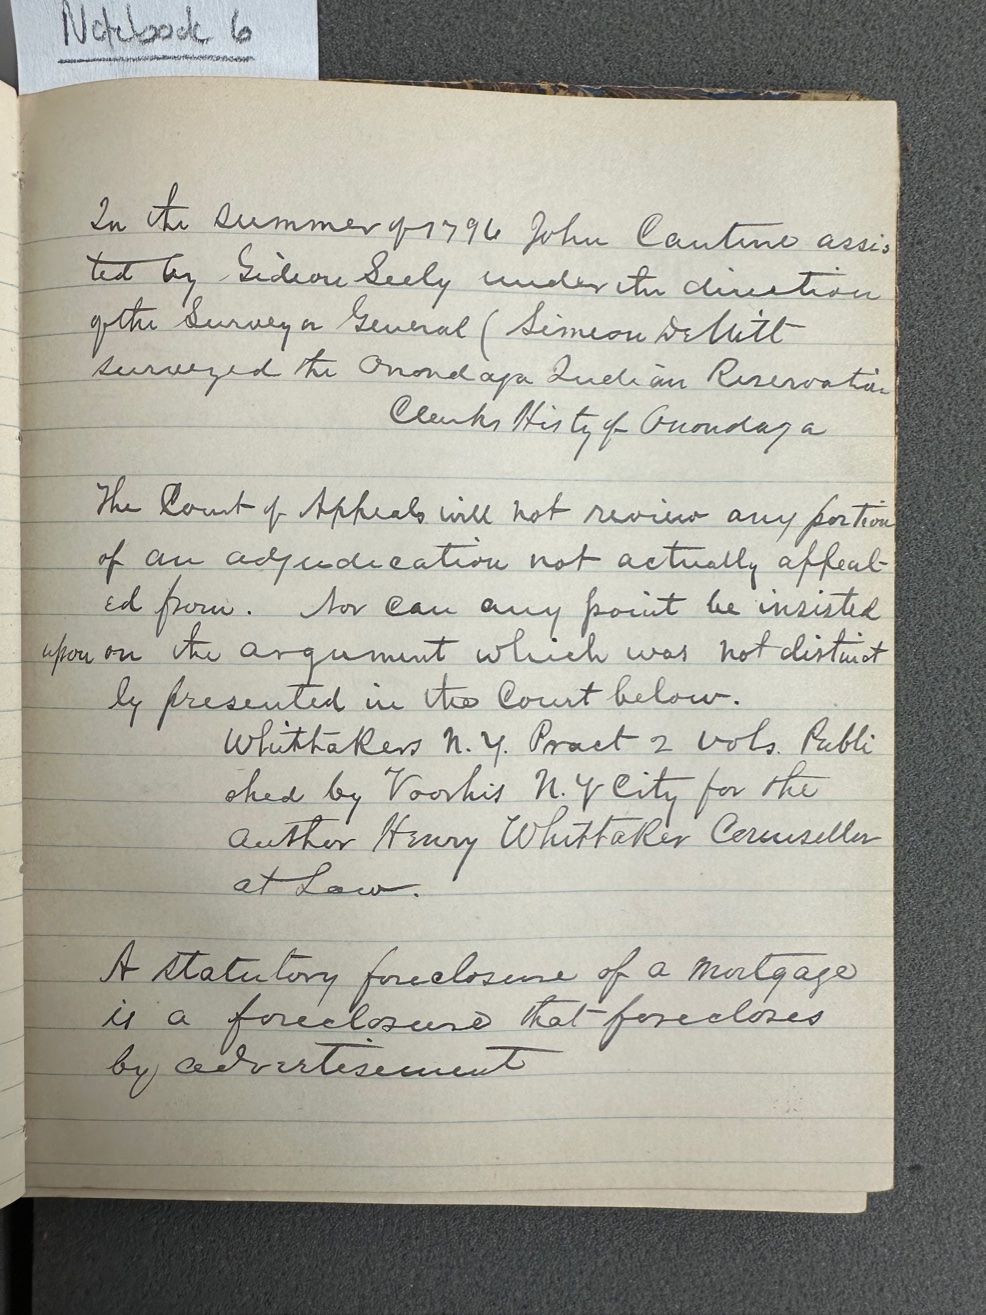 Notebook 6
In the summer of 1796 John Cantine assis
ted by Gideon Seely under the direction
of the Surveyor General ( Simeon DeWitt
surveyed the Onondaga Indian Reservation
Clarks Histy of Onondaga
The Court of Appeals will not review any portion
of an adjudication not actually appeal-
ed from. Nor can any point be insisted
upon on the argument which was not distinct
ly presented in the Court below.
Whittakers N.Y. Pract 2 vols. Publi
shed by Voorhis N.Y City for the
author Henry Whittaker Counsellor
at Law.
A statutory foreclosure of a mortgage
is a foreclosure that forecloses
by advertisement